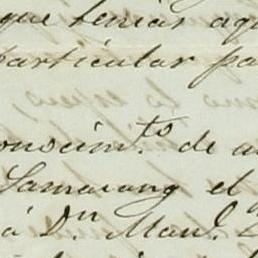 que tenias aqu
particular pa
onocim.to de a
Samarang el
á Dn Manl.